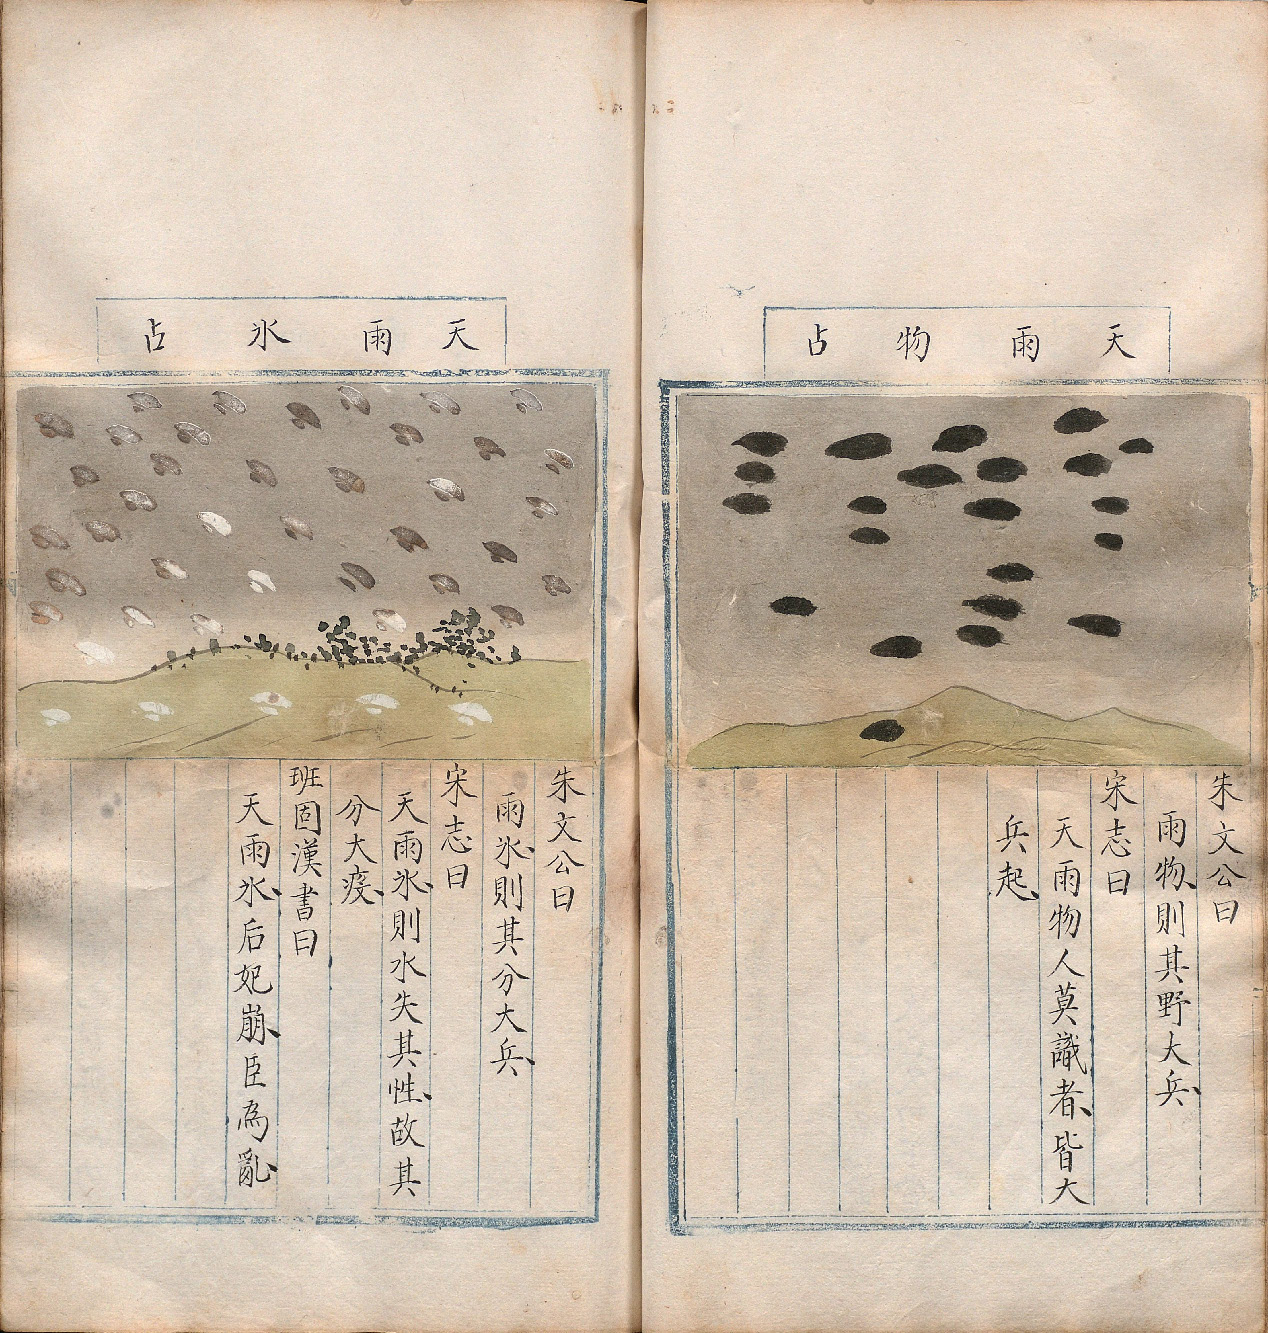 天雨物占
朱文公曰
雨物則其野大兵、
宋志曰
天雨物人莫識者、皆大
兵起、
天雨氷占
朱文公曰
雨氷、則其分大兵、
宋志曰
天雨氷、則水失其性、故其
分大疫、
班固漢書曰
天雨氷、后妃崩、臣為亂、